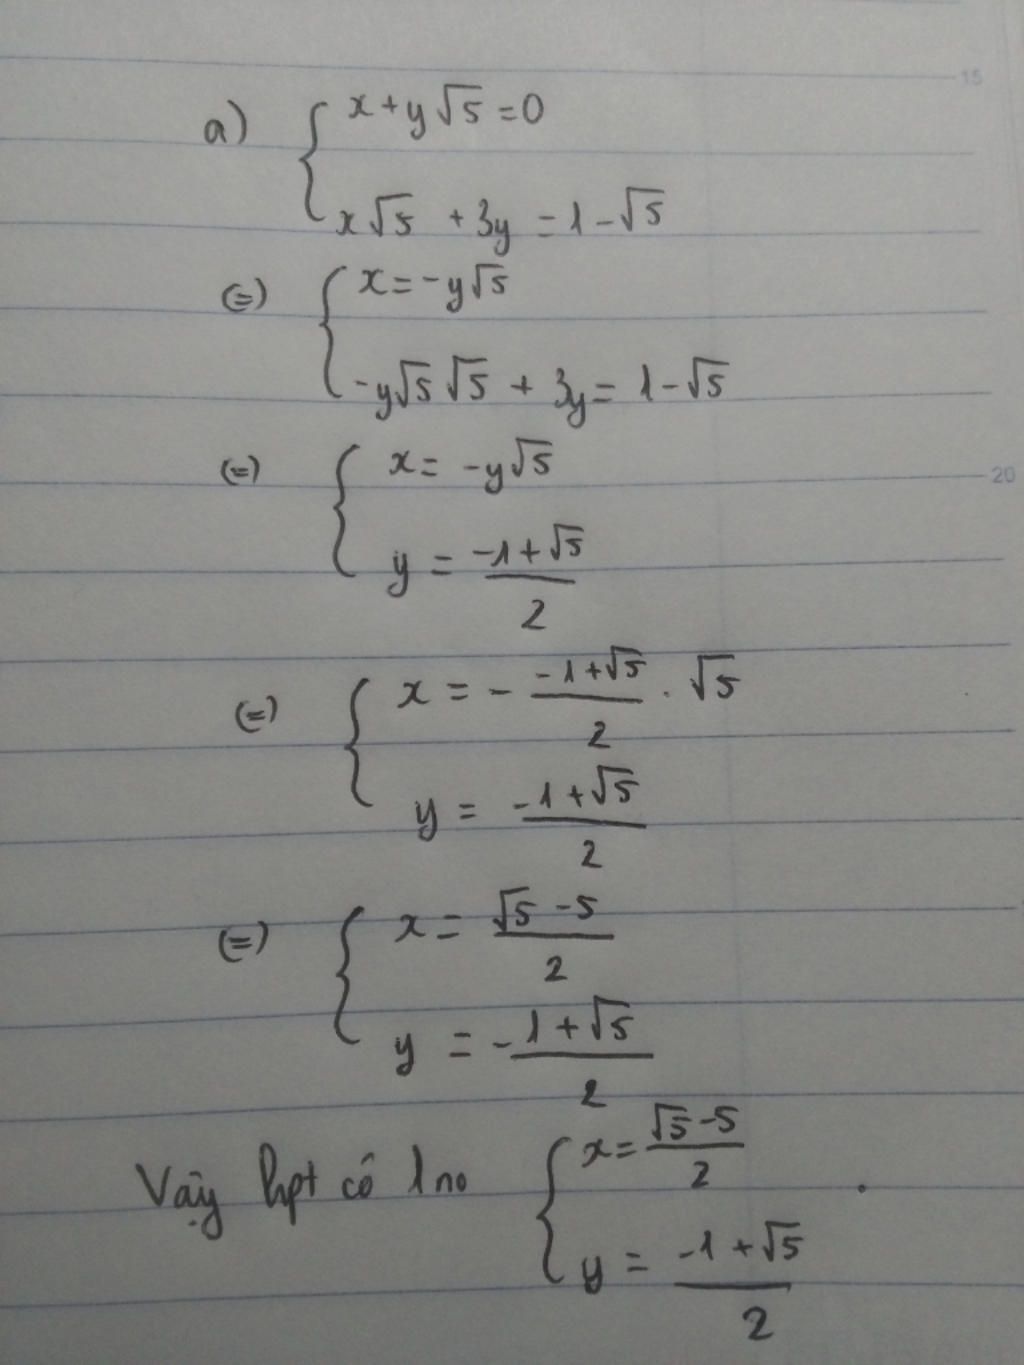 15
a) { x + y√5 = 0
x√5 + 3y = 1 - √5
(=) { x = -y√5
-y√5 √5 + 3y = 1 - √5
20
(=) { x = -y√5
y = (-1 + √5)/2
(=) { x = - (-1 + √5)/2 . √5
y = (-1 + √5)/2
(=) { x = (√5 - 5)/2
y = (-1 + √5)/2
Vậy hpt có 1 no { x = (√5 - 5)/2 .
y = (-1 + √5)/2